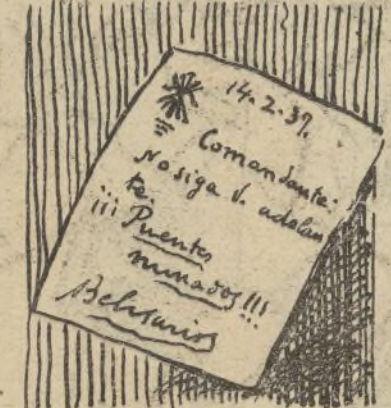 14-2-37.
Comandante:
No siga V. adelan
te.
¡¡¡ Puentes
minados!!!
Belisario